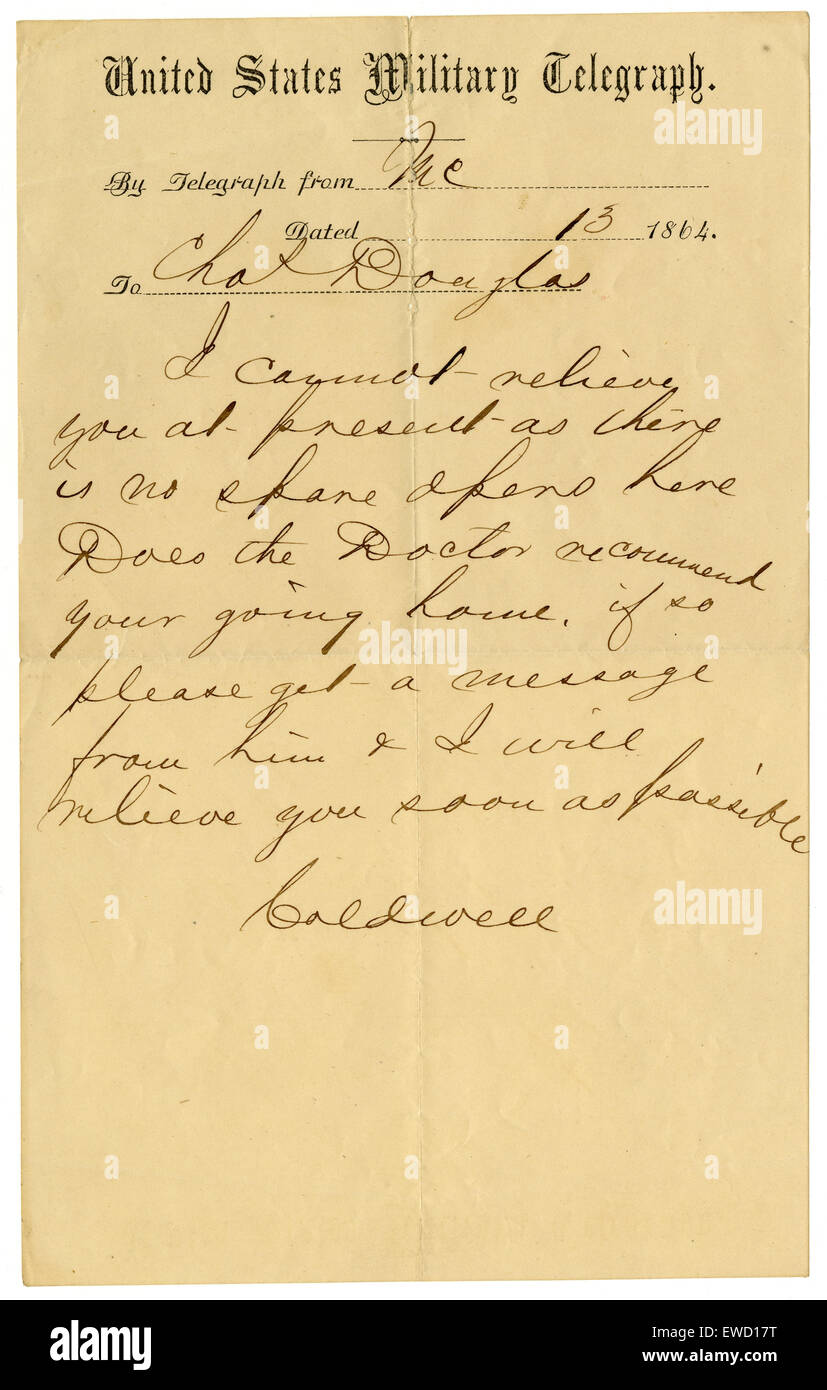 United States Military Telegraph.
By Telegraph from Mc
Dated 13 1864.
To Chas Douglas
I cannot relieve
you at present as there
is no spare opers here
Does the Doctor recommend
your going home. if so
please get a message
from him & I will
relieve you soon as possible
Caldwell
alamy
Image ID: EWD17T
www.alamy.com